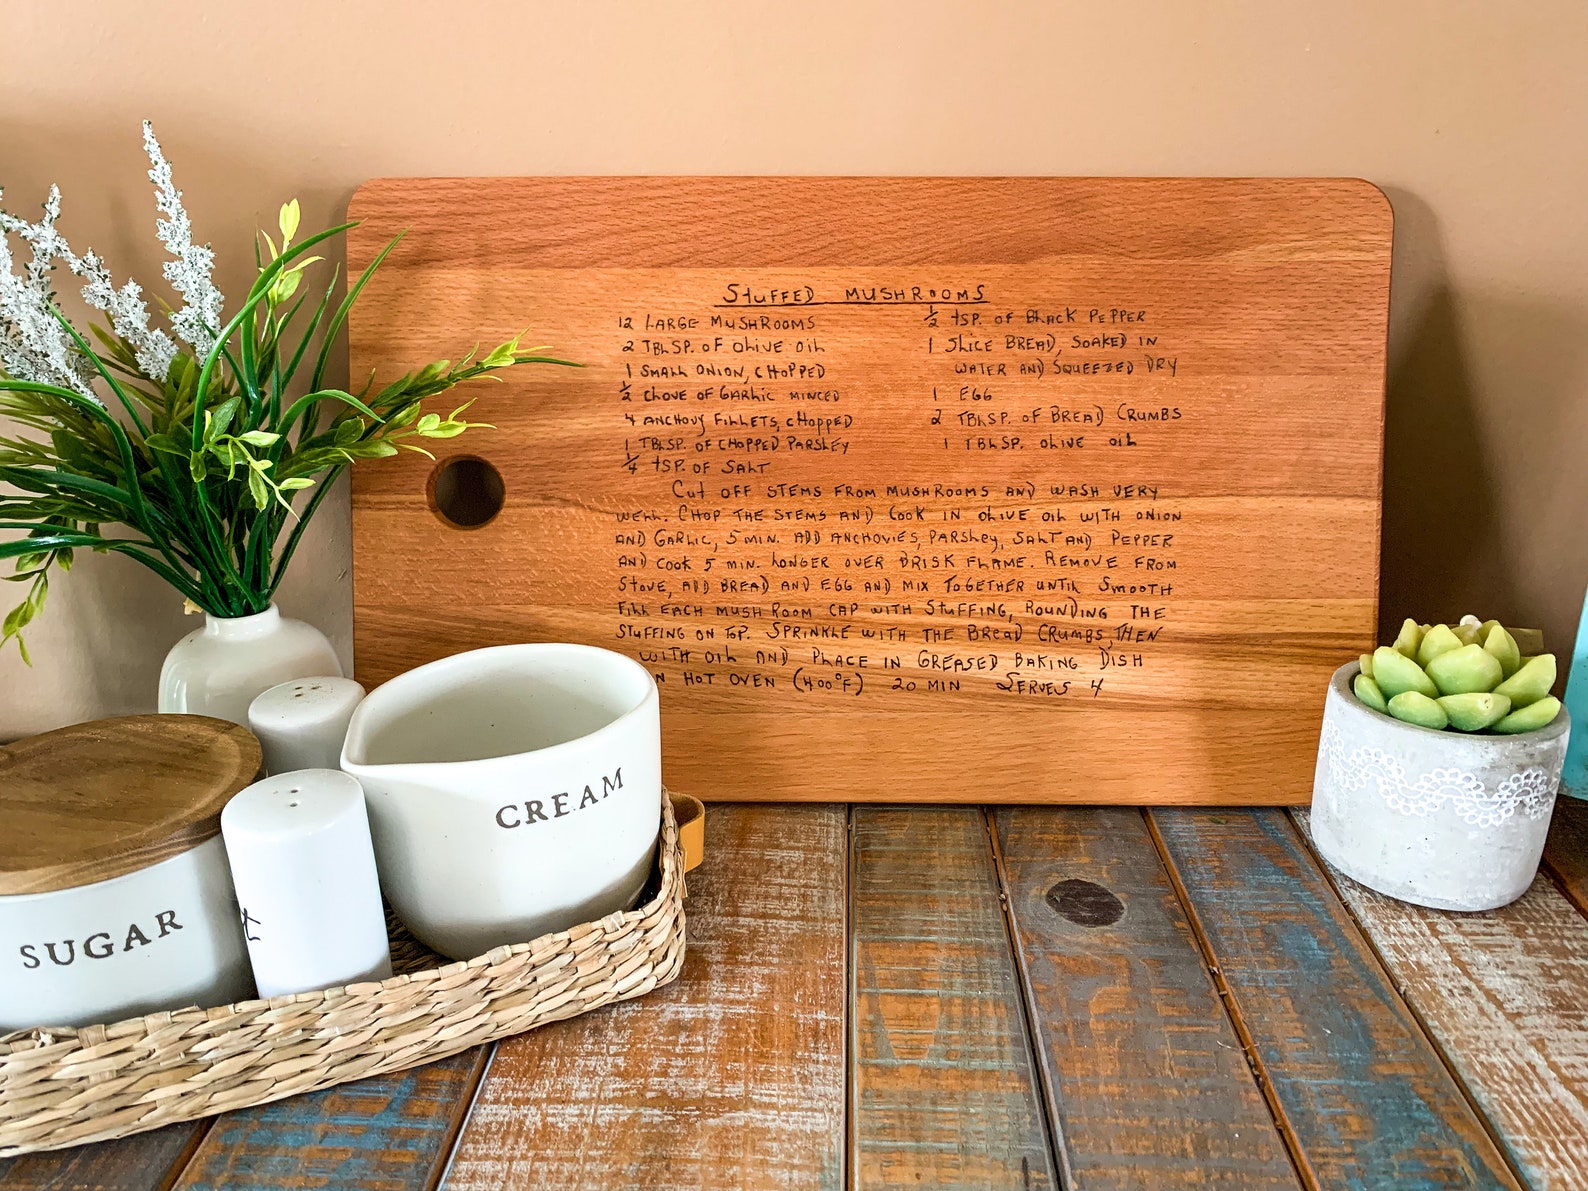 Stuffed Mushrooms
12 Large Mushrooms
2 Tblsp. of Olive Oil
1 Small Onion, Chopped
½ Clove of Garlic Minced
4 Anchovy Fillets, Chopped
1 Tblsp. of Chopped Parsley
¼ tsp. of Salt
½ tsp. of Black Pepper
1 Slice Bread, Soaked in
Water and Squeezed Dry
1 Egg
2 Tblsp. of Bread Crumbs
1 Tblsp. Olive Oil
Cut off stems from mushrooms and wash very
well. Chop the stems and cook in olive oil with onion
and garlic, 5 min. Add anchovies, parsley, salt and pepper
and cook 5 min. longer over brisk flame. Remove from
stove, add bread and egg and mix together until smooth
Fill each mushroom cap with stuffing, rounding the
stuffing on top. Sprinkle with the bread crumbs, then
with oil and place in greased baking dish
hot oven (400°F) 20 min Serves 4
CREAM
SUGAR